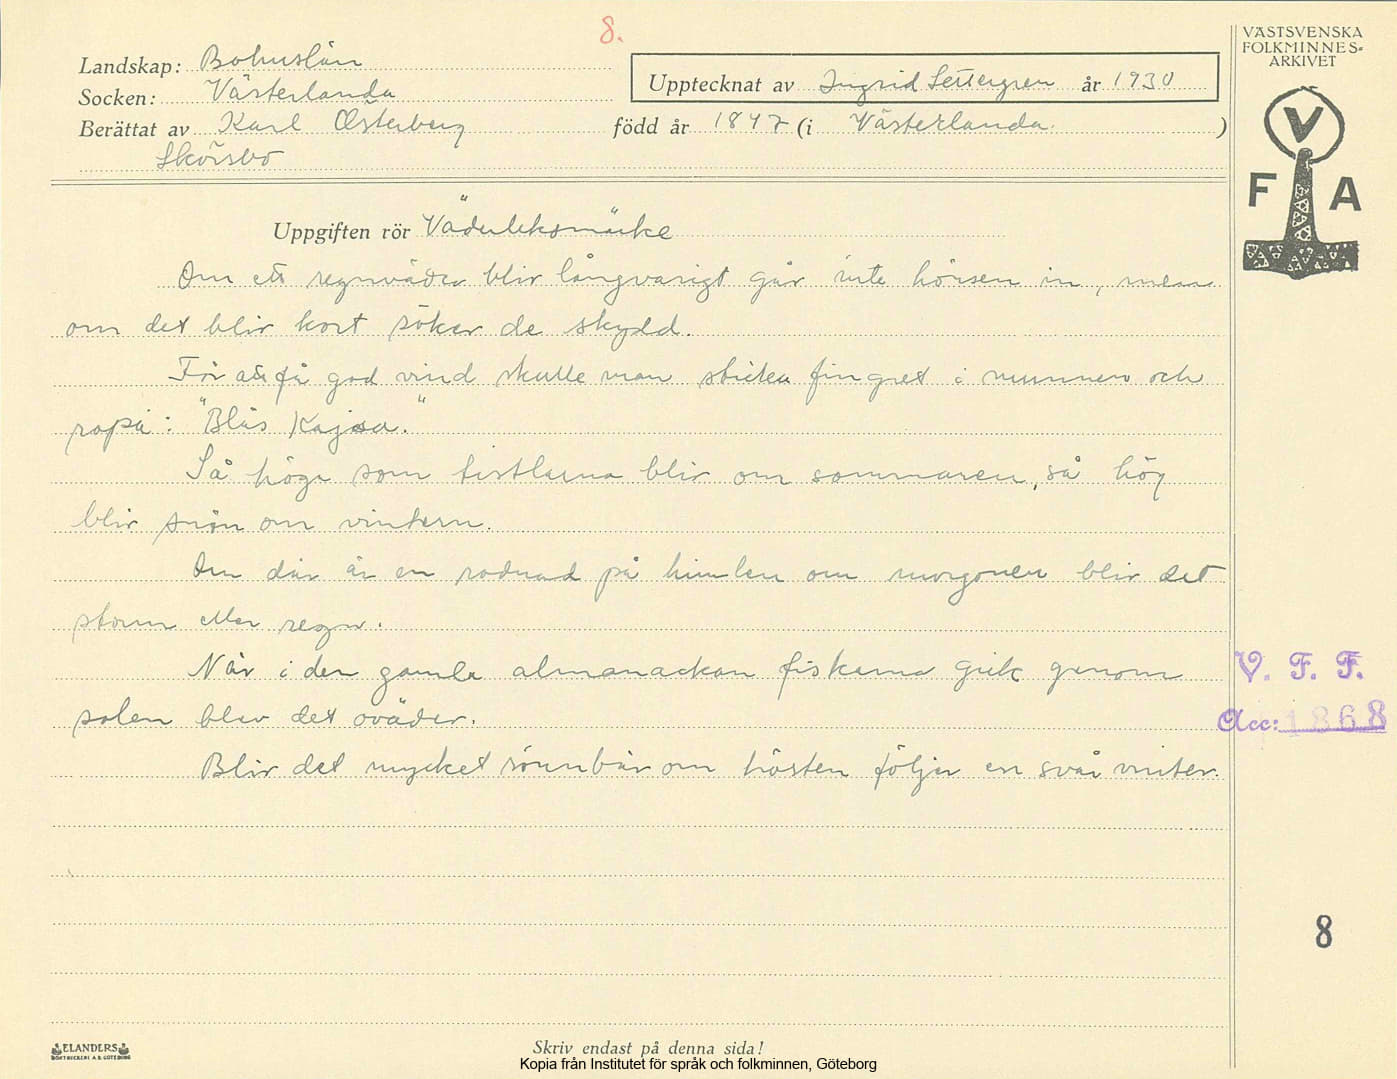 8.
VÄSTSVENSKA
FOLKMINNES-
ARKIVET
Landskap: Bohuslän
Upptecknat av Ingrid Settergren år 1930
Socken: Västerlanda
Berättat av Karl Österberg född år 1847 (i Västerlanda. )
Skörsbo
V
F A
Uppgiften rör Väderleksmärke
Om ett regnväder blir långvarigt går inte hönsen in, men
om det blir kort söker de skydd.
För att få god vind skulle man sticka fingret i munnen och
ropa: "Blås Kajsa."
Så höga som tistlarna blir om sommaren, så hög
blir snön om vintern.
Om där är en rodnad på himlen om morgonen blir det
storm eller regn.
När i den gamla almanackan fiskarna gick genom
solen blev det oväder.
Blir det mycket rönnbär om hösten följer en svår vinter.
V. F. F.
Acc: 1868
8
ELANDERS
BOKTRYCKERI A.B. GÖTEBORG
Skriv endast på denna sida!
Kopia från Institutet för språk och folkminnen, Göteborg